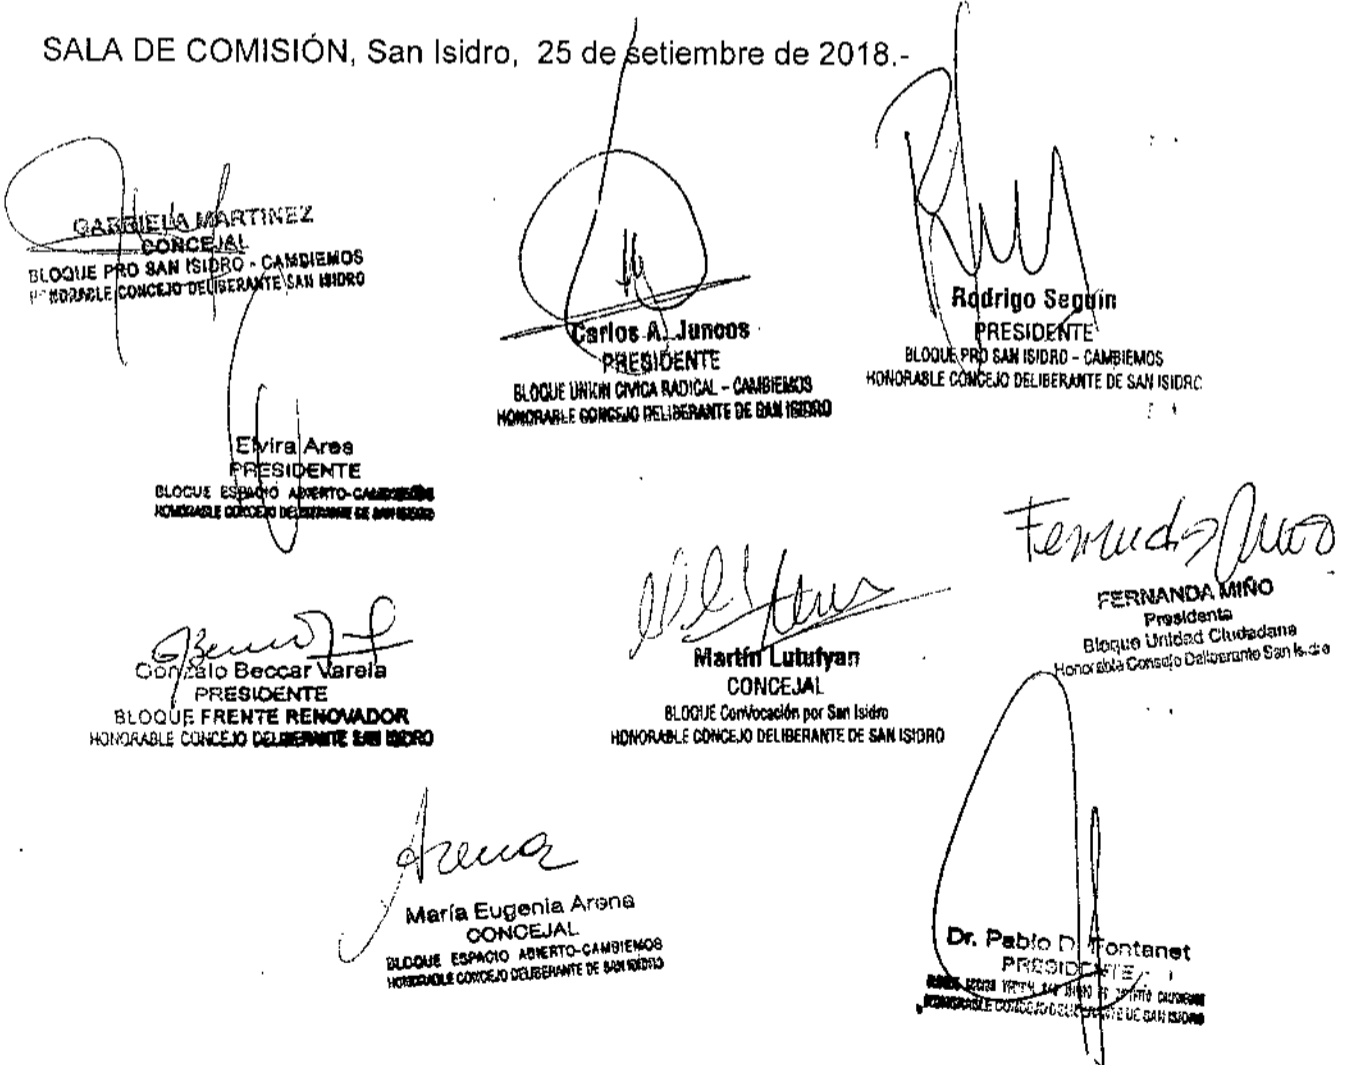 SALA DE COMISIÓN, San Isidro, 25 de setiembre de 2018.-
GABRIELA MARTINEZ
CONCEJAL
BLOQUE PRO SAN ISIDRO - CAMBIEMOS
HONORABLE CONCEJO DELIBERANTE SAN ISIDRO
Carlos A. Juncos
PRESIDENTE
BLOQUE UNION CIVICA RADICAL - CAMBIEMOS
HONORABLE CONCEJO DELIBERANTE DE SAN ISIDRO
Rodrigo Seguin
PRESIDENTE
BLOQUE PRO SAN ISIDRO - CAMBIEMOS
HONORABLE CONCEJO DELIBERANTE DE SAN ISIDRO
Elvira Ares
PRESIDENTE
BLOQUE ESPACIO ABIERTO-CAMBIEMOS
HONORABLE CONCEJO DELIBERANTE DE SAN ISIDRO
Fernanda Miño
FERNANDA MIÑO
Presidenta
Bloque Unidad Ciudadana
Honorable Concejo Deliberante San Isidro
Gonzalo Beccar Varela
PRESIDENTE
BLOQUE FRENTE RENOVADOR
HONORABLE CONCEJO DELIBERANTE SAN ISIDRO
Martín Lutufyan
CONCEJAL
BLOQUE ConVocación por San Isidro
HONORABLE CONCEJO DELIBERANTE DE SAN ISIDRO
Arena
María Eugenia Arena
CONCEJAL
BLOQUE ESPACIO ABIERTO-CAMBIEMOS
HONORABLE CONCEJO DELIBERANTE DE SAN ISIDRO
Dr. Pablo D. Fontanet
PRESIDENTE
HONORABLE CONCEJO DELIBERANTE DE SAN ISIDRO